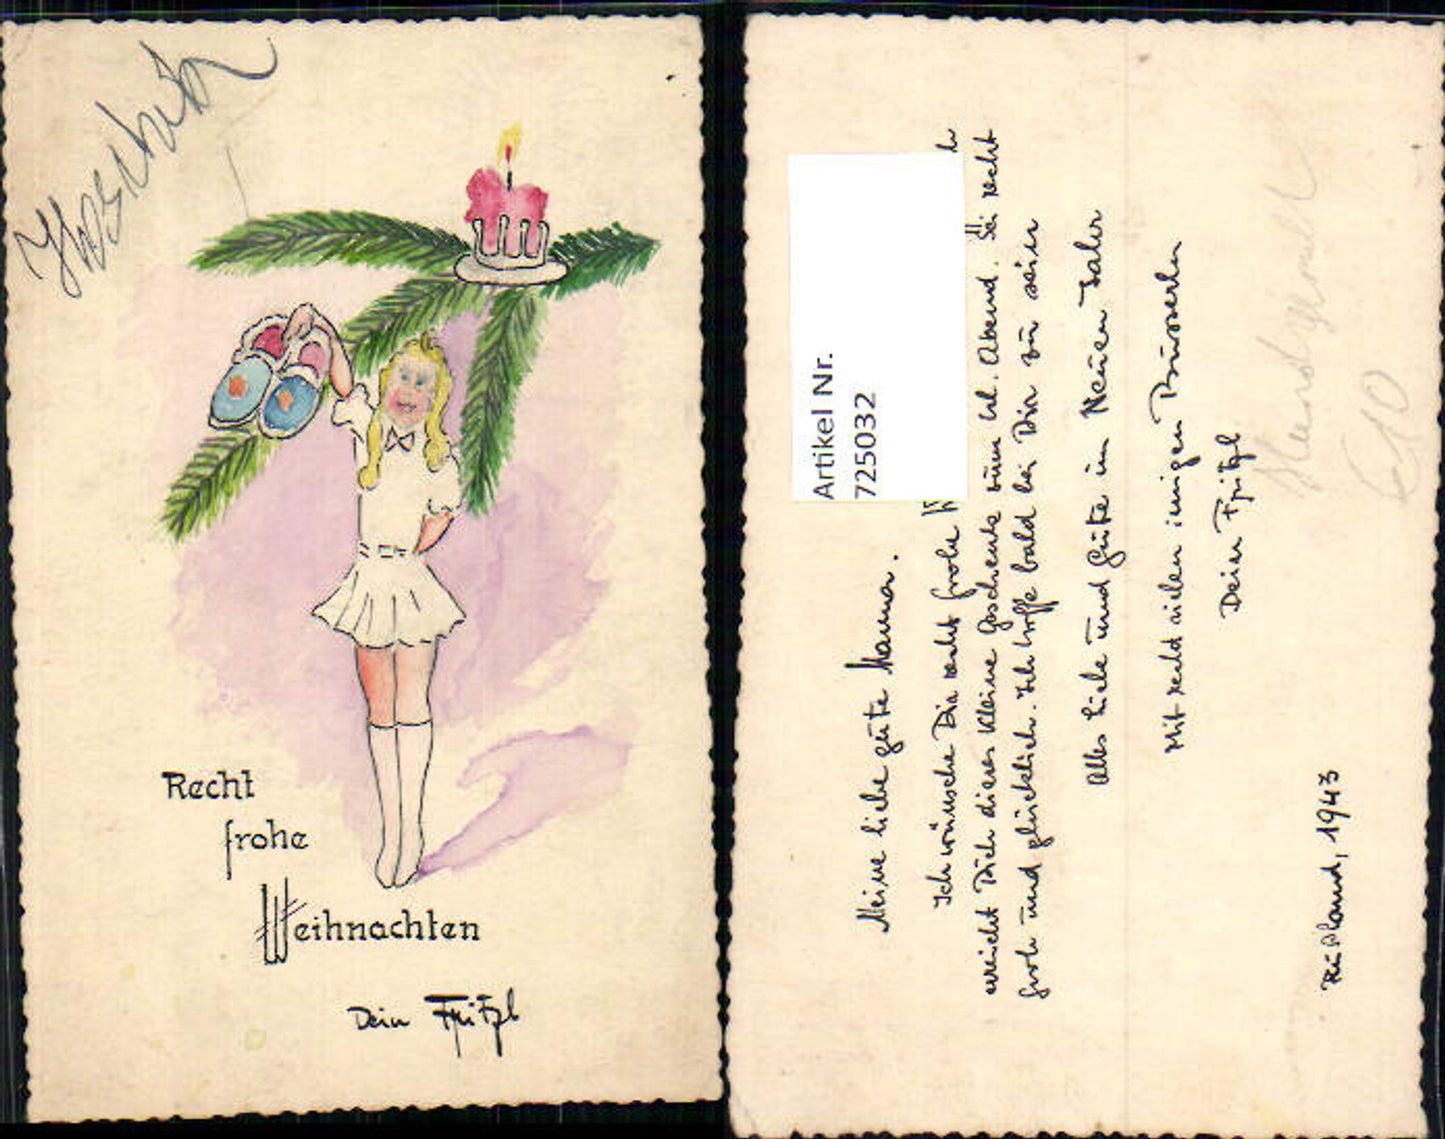 Recht
frohe
Weihnachten
Dein Fritzl
Artikel Nr.
725032
Meine liebe gute Mama.
Ich wünsche Dir recht frohe
erreicht Dich dieses kleine Geschenk zum hl. Abend. Sei recht
froh und glücklich. Ich hoffe bald bei Dir zu sein
Alles Liebe und Gute im Neuen Jahr
Mit recht vielen innigen Busserln
Dein Fritzl
Rußland, 1943
Handgemalt
€10